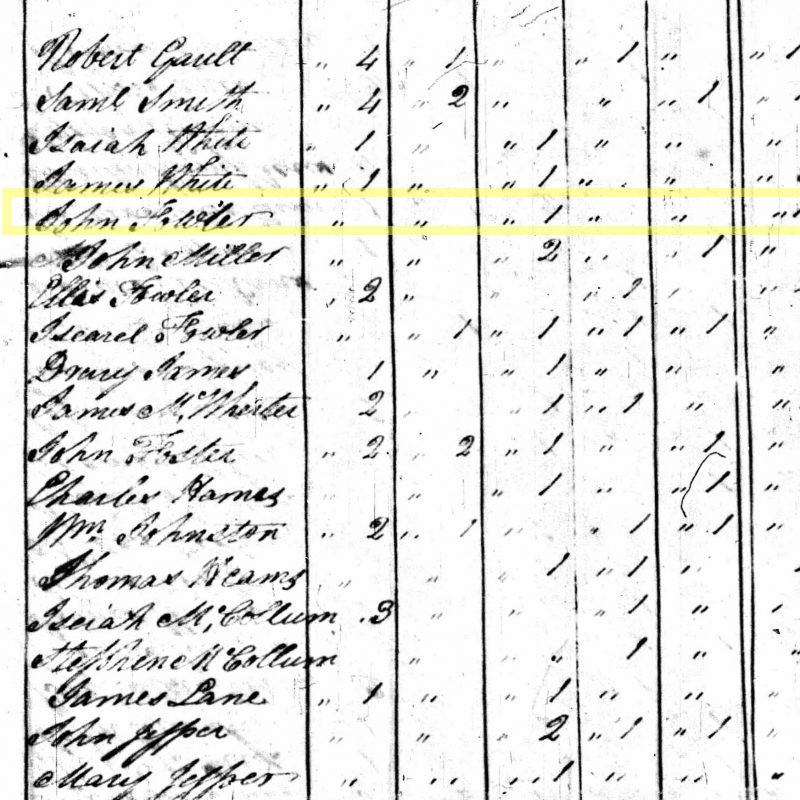 Robert Gault " 4 " 1 " " 1 " " 1
Saml Smith " 4 " 2 " " " 1 "
Isaiah White " 1 " " 1 " " "
James White " 1 " " 1 " " "
John Fowler " " " 1 " " "
John Miller " " 2 " " 1 "
Ellis Fowler " 2 " " 1 "
Isearel Fowler " " 1 " 1 " 1 " 1 "
Drury James 1 " " 1 " " "
James McWherter 2 " 1 " 1 " "
John Foster " 2 2 " 1 " " 1 "
Charles Hames " 1 " 1 "
Wm Johnston " 2 " 1 " " 1 " 1 "
Thomas " " " 1 " 1 "
Iseiah McCollum 3 " " " 1 " "
Stephen McCollum " " " 1 " "
James Lane " 1 " " 1 " " "
John Jesper " " 2 " 1 " 1 "
Mary Jesper " " " 1 " " "